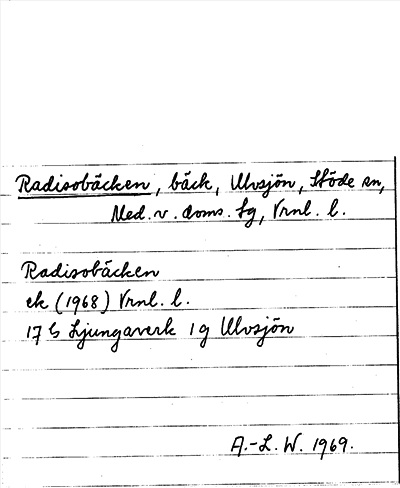 Radisobäcken, bäck, Ulvsjön, Stöde sn,
Med. v. doms. tg, Vrnl. l.
Radisobäcken
ek (1968) Vrnl. l.
17 G Ljungaverk 1 g Ulvsjön
A.-L. W. 1969.